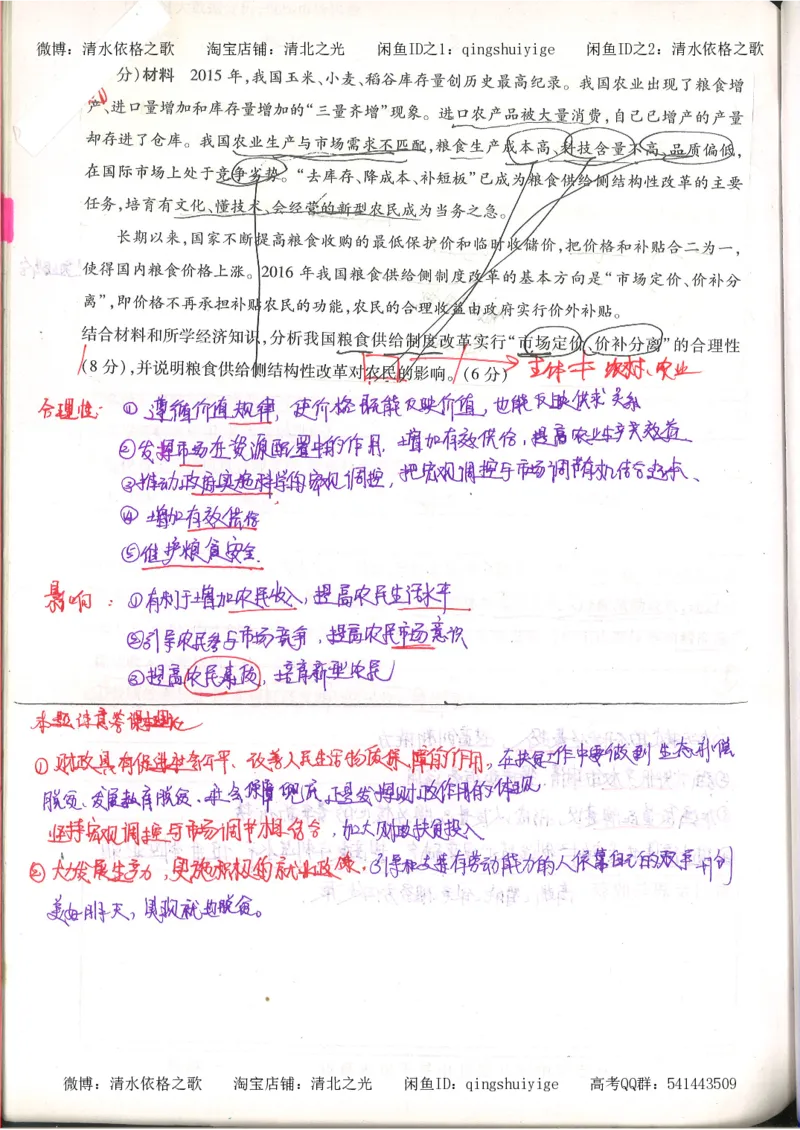 微博：清水依格之歌 淘宝店铺：清北之光 闲鱼ID之1：qingshuiyige 闲鱼ID之2：清水依格之歌
分)材料 2015年,我国玉米、小麦、稻谷库存量创历史最高纪录。我国农业出现了粮食增
产、进口量增加和库存量增加的“三量齐增”现象。进口农产品被大量消费,自己已增产的产量
却存进了仓库。我国农业生产与市场需求不匹配,粮食生产成本高、科技含量不高、品质偏低,
在国际市场上处于竞争劣势。“去库存、降成本、补短板”已成为粮食供给侧结构性改革的主要
任务,培育有文化、懂技术、会经营的新型农民成为当务之急。
长期以来,国家不断提高粮食收购的最低保护价和临时收储价,把价格和补贴合二为一,
使得国内粮食价格上涨。2016年我国粮食供给侧制度改革的基本方向是“市场定价、价补分
离”,即价格不再承担补贴农民的功能,农民的合理收益由政府实行价外补贴。
结合材料和所学经济知识,分析我国粮食供给制度改革实行“市场定价、价补分离”的合理性
(8分),并说明粮食供给侧结构性改革对农民的影响。(6分) 主体 农村、农业
合理性：①遵循价值规律，使价格既能反映价值，也能反映供求关系
②发挥市场在资源配置中的作用，增加有效供给，提高农业生产效益
③推动政府实施科学的宏观调控，把宏观调控与市场调节有机结合起来、
④增加有效供给
⑤维护粮食安全.
影响：①有利于增加农民收入，提高农民生活水平
②引导农民参与市场竞争，提高农民市场意识
③提高农民素质，培育新型农民
①财政具有促进社会公平、改善人民生活物质保障的作用。在扶贫工作中要做到生态补偿
脱贫、发展教育脱贫、社会保障兜底，正是发挥财政作用的体现.
坚持宏观调控与市场调节相结合，加大财政扶贫投入
②大力发展生产力，实施积极的就业政策.引导和支持有劳动能力的人依靠自己的双手开创
美好明天，实现就业脱贫。
微博：清水依格之歌 淘宝店铺：清北之光 闲鱼ID：qingshuiyige 高考QQ群：541443509